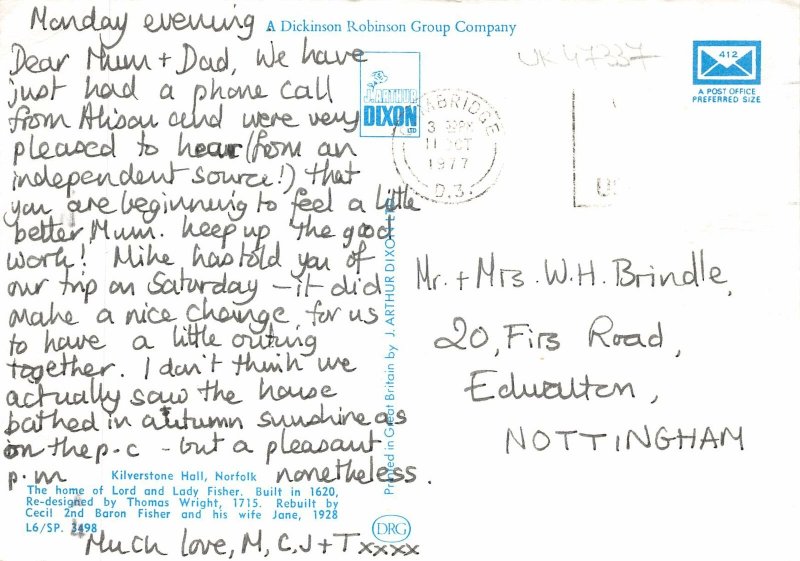 Monday evening
A Dickinson Robinson Group Company
Dear Mum + Dad, We have
just had a phone call
from Alison and were very
pleased to hear (from an
independent source!) that
you are beginning to feel a little
better, Mum. Keep up the good
work! Mike has told you of
our trip on Saturday - it did
make a nice change for us
to have a little outing
together. I don't think we
actually saw the house
bathed in autumn sunshine as
on the p.c - but a pleasant
p.m nonetheless.
Kilverstone Hall, Norfolk
The home of Lord and Lady Fisher. Built in 1620,
Re-designed by Thomas Wright, 1715. Rebuilt by
Cecil 2nd Baron Fisher and his wife Jane, 1928
L6/SP. 3498
Much love, M, C, J + T xxxx
J. ARTHUR
DIXON
LTD
Printed in Great Britain by J. ARTHUR DIXON LTD.
DRG
UK47337
412
A POST OFFICE
PREFERRED SIZE
BRIDGE
3
11 OCT
1977
D.3
Mr. + Mrs. W.H. Brindle,
20, Firs Road,
Edwalton,
NOTTINGHAM